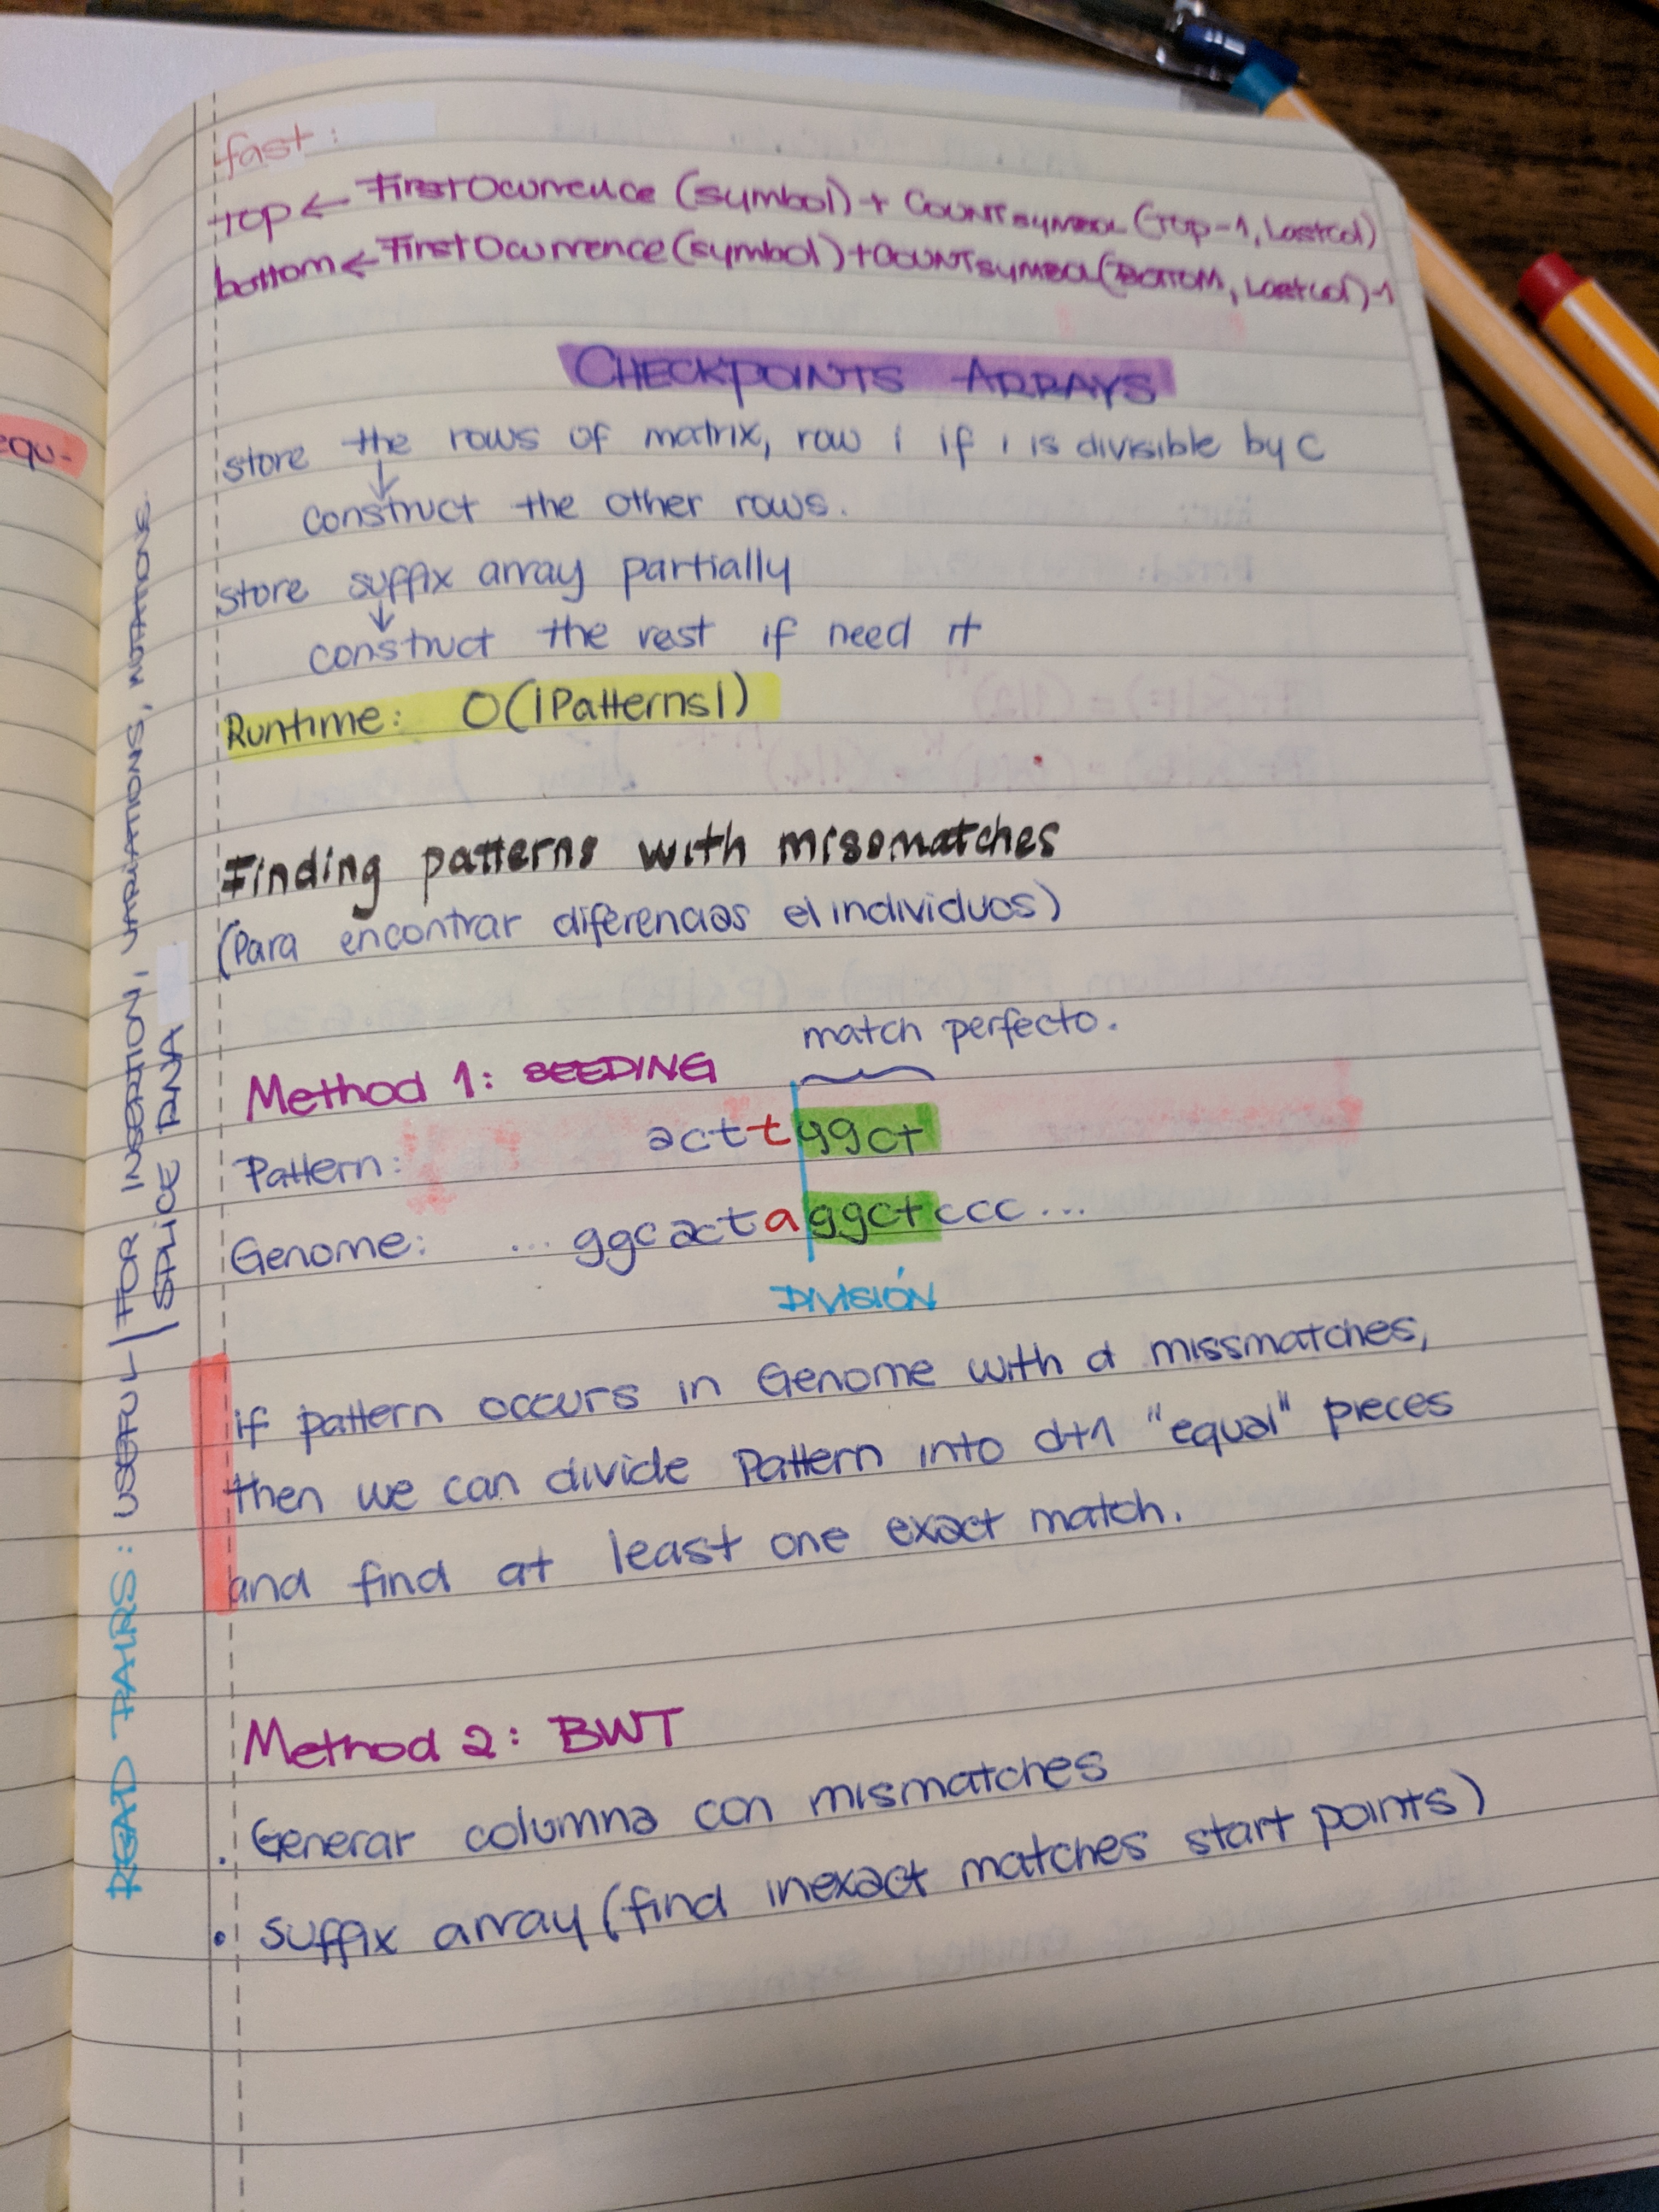 fast:
top ← FirstOcurrence (symbol) + COUNTSYMBOL (TOP-1, LastCol)
bottom ← FirstOcurrence (symbol) + COUNTSYMBOL (BOTTOM, LastCol)-1
CHECKPOINTS ARRAYS
store the rows of matrix, row i if i is divisible by C
↓
construct the other rows.
store suffix array partially
↓
construct the rest if need it
Runtime: O(|Patterns|)
Finding patterns with missmatches
(Para encontrar diferencias e/individuos)
match perfecto.
Method 1: SEEDING
Pattern: acttggct
Genome: ... ggcactaggctccc ...
DIVISIÓN
if pattern occurs in Genome with d missmatches,
then we can divide Pattern into d+1 "equal" pieces
and find at least one exact match.
Method 2: BWT
. Generar columna con mismatches
• suffix array (find inexact matches start points)
READ PAIRS: USEFUL | FOR INSERTION, VARIATIONS, MUTATIONS.
SPLICE RNA
equ-